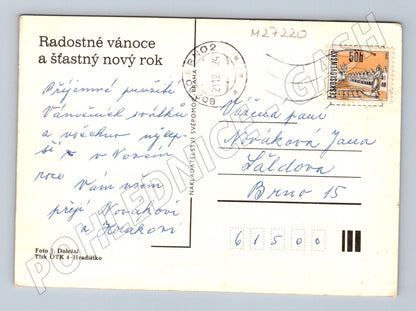 M27220
Radostné vánoce
a šťastný nový rok
Příjemné prožití
Vánočních svátků
a všechno nejlep
ší v Novém
roce
Vám všem
přejí Novákovi
a Horákovi
Foto J. Doležal
Tisk OTK 4 - Hradištko
NAKLADATELSTVÍ SVĚPOMOC PRAHA
BRNO 2
21.12.
50h
ČESKOSLOVENSKO
Vážená paní
Nováková Jana
Brno 15
61500
POHLEDNICE - GASH